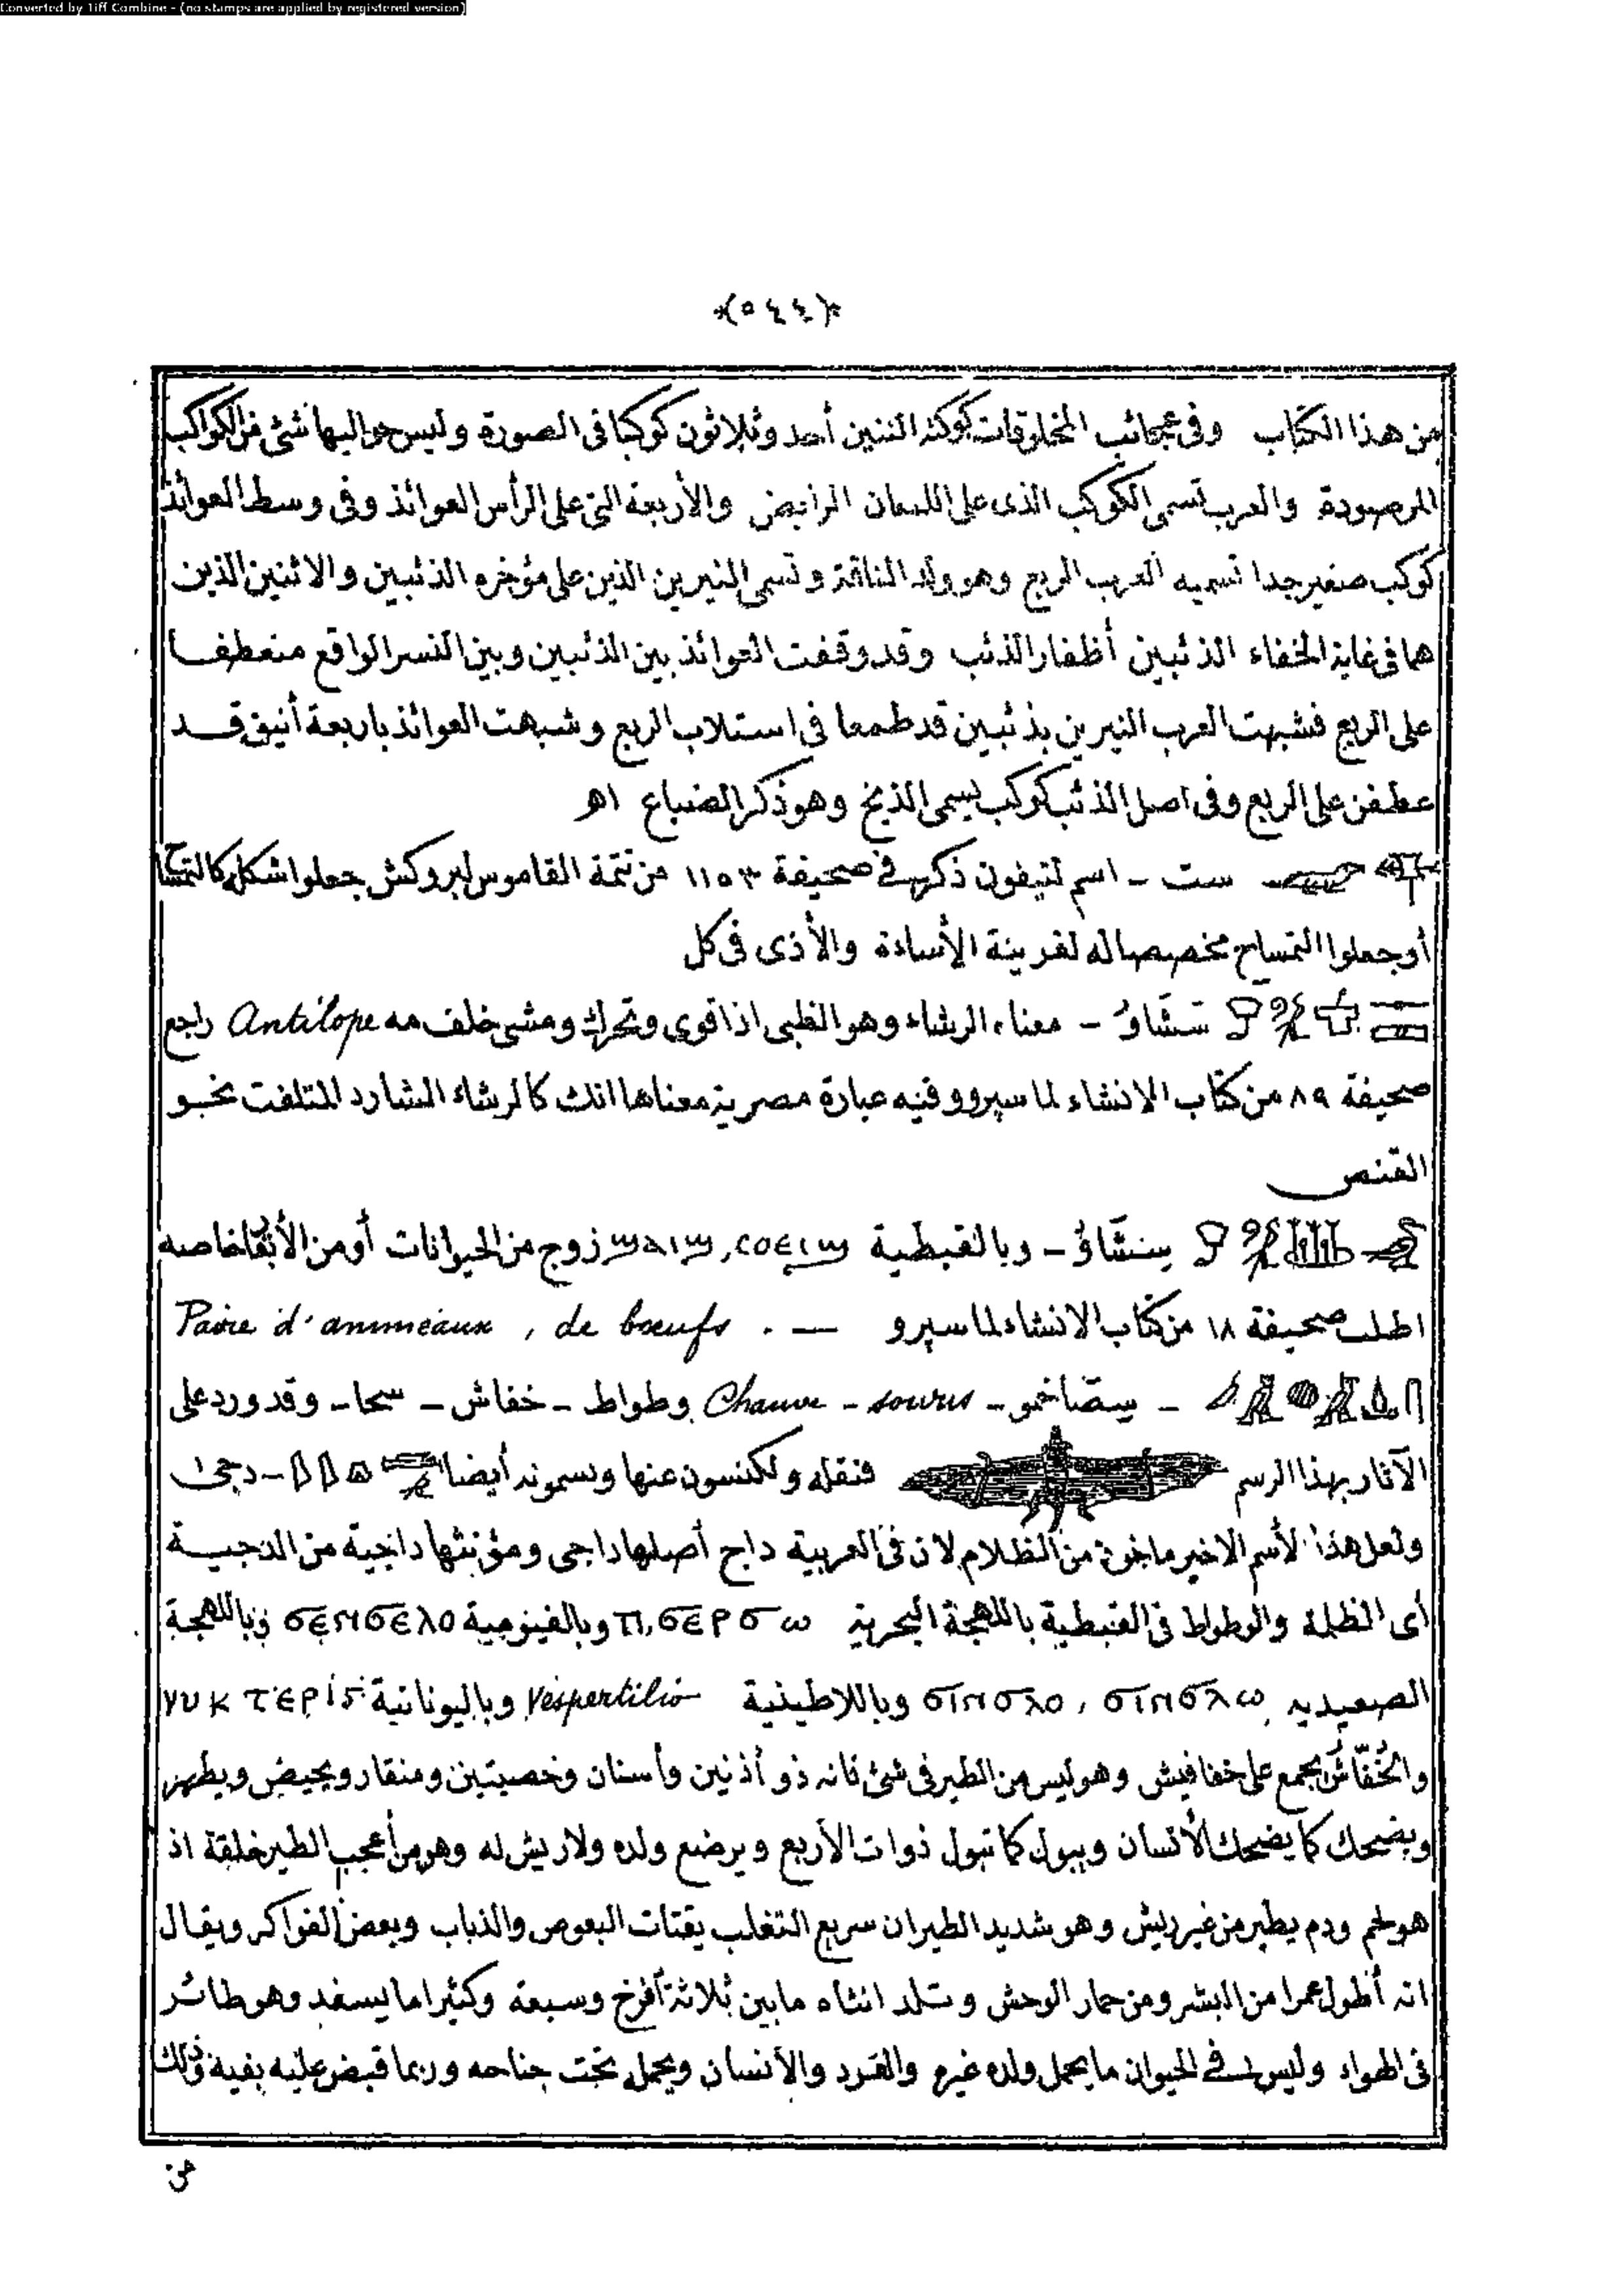 Converted by Tiff Combine - (no stamps are applied by registered version)
*(٥٤٤)*
من هذا الكتاب وفى عجائب المخلوقات كوكبة التنين أحد وثلاثون كوكبا فى الصورة وليس حواليها شئ من الكواكب
المرصودة والعرب تسمى الكوكب الذى على اللسان الرابض والأربعة التى على الرأس العوائذ وفى وسط العوائذ
كوكب صغير جدا تسميه العرب الربع وهو ولد الناقة وتسمى النيرين الذين على مؤخره الذئبين والاثنين الذين
هما فى غاية الخفاء الذئبين أظفار الذئب وقد وقفت العوائذ بين الذئبين وبين النسر الواقع منعطفا
على الربع فشبهت العرب النيرين بذئبين قد طمعا فى استلاب الربع وشبهت العوائذ باربعة أنيق قد
عطفن على الربع وفى اصل الذئب كوكب يسمى الذيخ وهو ذكر الضباع اه
ست - اسم لتيفون ذكر فى صحيفة ١١٥٣ من تتمة القاموس لبروكش جعلوا شكله كالتمساح
أو جعلوا التمساح مخصصا له لقرينة الأساءة والأذى فى كل
تشاو - معناه الرشاء وهو الظبى اذا قوى وتحرك ومشى خلف امه Antilope راجع
صحيفة ٨٩ من كتاب الانشاء لماسبرو وفيه عبارة مصرية معناها انك كالرشاء الشارد المتلفت نحو
القنص
سنشاو - وبالقبطية ϣⲁⲓϣ, ⲥⲟⲉⲓϣ زوج من الحيوانات أو من الأبقار خاصه
اطلب صحيفة ١٨ من كتاب الانشاء لماسبرو — . Paire d'animeaux, de bœufs
- سضاخمو - Chauve-souris وطواط - خفاش - سحا - وقد ورد على
الآثار بهذا الرسم فنقله ولكنسون عنها ويسمونه أيضا - دجى
ولعل هذا الأسم الاخير ماخوذ من الظلام لان فى العربية داج أصلها داجى ومؤنثها داجية من الدجية
أى الظلمة والوطواط فى القبطية باللهجة البحرية ⲡⲓϭⲉⲣϭⲱ وبالفيومية ϭⲉⲛϭⲉⲗⲟ وباللهجة
الصعيديه ϭⲓⲛϭⲗⲟ, ϭⲓⲛϭⲗⲱ وباللاطينية Vespertilio وباليونانية νυκτερίς
والخُفّاش يجمع على خفافيش وهو ليس من الطير فى شئ فانه ذو أذنين وأسنان وخصيتين ومنقار ويحيض ويطهر
ويضحك كما يضحك الأنسان ويبول كما تبول ذوات الأربع ويرضع ولده ولا ريش له وهو من أعجب الطير خلقة اذ
هو لحم ودم يطير من غير ريش وهو شديد الطيران سريع التقلب يقتات البعوض والذباب وبعض الفواكه ويقال
انه أطول عمرا من البشر ومن حمار الوحش وتلد انثاه مابين ثلاثة أفرخ وسبعة وكثيرا ما يسفد وهو طائر
فى الهواء وليس فى الحيوان ما يحمل ولده غيره والقرد والأنسان ويحمله تحت جناحه وربما قبض عليه بفيه وذلك
من